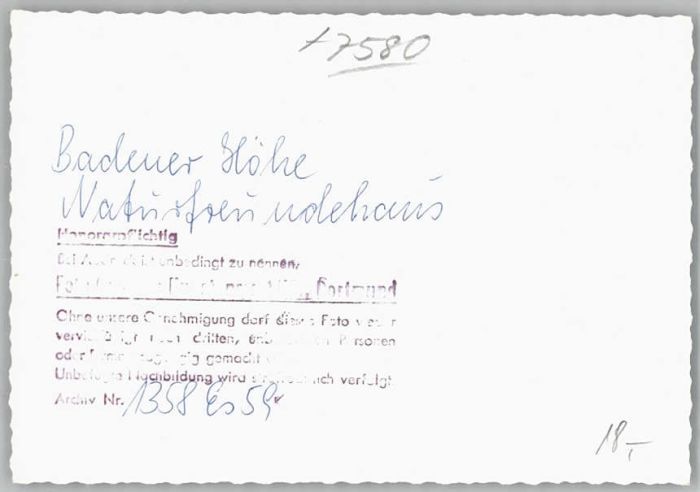 +7580
Badener Höhe
Naturfreundehaus
Honorarpflichtig
unbedingt zu nennen,
Dortmund
Ohne unsere Genehmigung darf dieses Foto weder
dritten, Personen
oder gemacht
Unbefugte Nachbildung wird strafrechtlich verfolgt.
Archiv Nr. 1358 Es 59
18,-